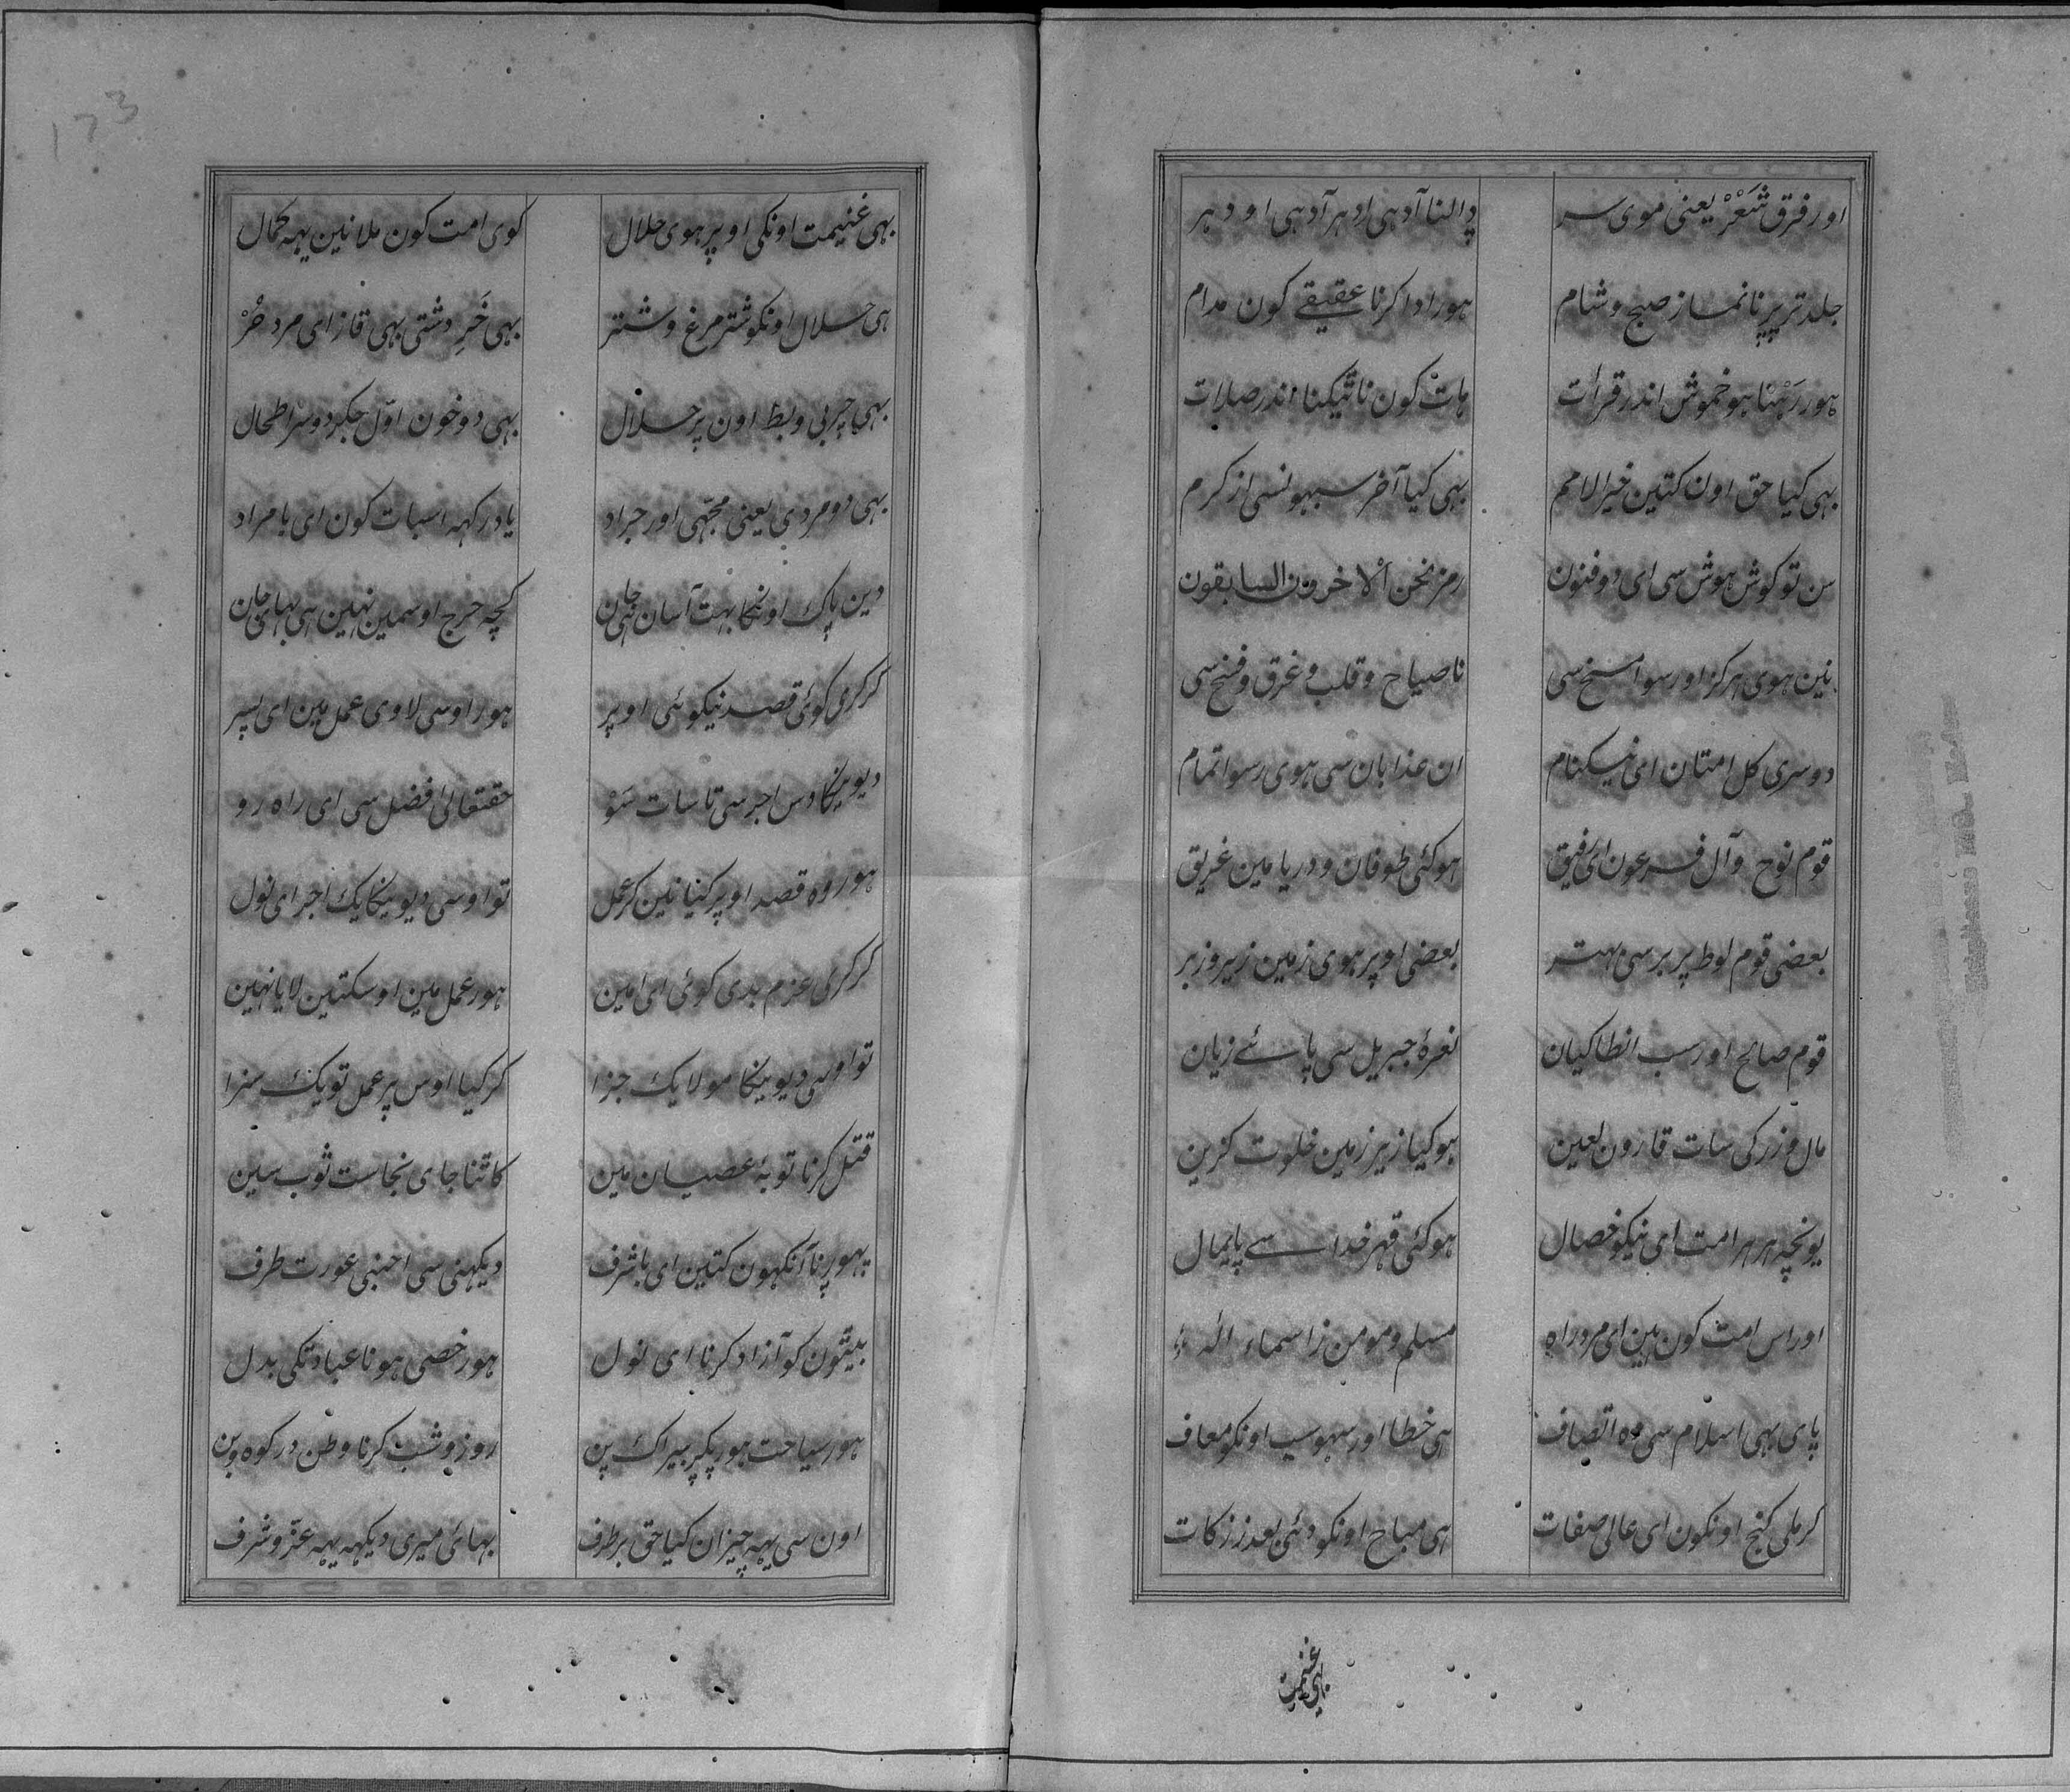 اور فرق شَعْرْ یعنی موی سر ڈالنا آدہی ادہر آدہی اودہر
جلدتر پڑنا نماز صبح و شام ہور ادا کرنا عقیقے کون مدام
ہور رَہْنا ہو خموش اندر قرأت ہات کون نا ٹیکنا اندر صلات
بہی کیا حق اون کتین خیر الامم بہی کیا آخر سبہونسی از کرم
سن تو کوش ہوش سی ای ذوفنون رمز نحن الآخرون السابقون
نین ہوی ہرکز اور سوا مسخ سی نا صیاح و قلب و غرق و فسخ سی
دوسری کل امتان ای نیکنام ان عذابان سی ہوی رسوا تمام
قوم نوح و آل فرعون ای رفیق ہوکئی طوفان و دریا مین غریق
بعضی قوم لوط پر برسی بہتر بعضی اوپر ہوی زمین زیر و زبر
قوم صالح اور سب انطاکیان نعرۂ جبریل سی پائے زیان
مال و زر کی سات قارون لعین ہوکیا زیر زمین خلوت کزین
یونچہ ہر ہر امت ای نیکو خصال ہوکئی قہر خدا سے پایمال
اور اس امت کون ہین ای مرد راہ مسلم و مومن ز اسماء الٰہ
پای بہی اسلام سی وہ اتصاف ہی خطا اور سہو سب اونکو معاف
کر ملی کنج اونکون ای عالی صفات ہی مباح اونکو دئی بعد ز زکات
بہی غنیمت
173
بہی غنیمت اونکی اوپر ہوی حلال کوی امت کون ملا نین یہہ کمال
ہی حلال اونکو شتر مرغ و شتر بہی خَرِ دشتی بہی قاز ای مرد حُرْ
بہی چربی و بط اون پر حلال بہی دو خون اوّل جکر دوسرا طحال
بہی دو مردی یعنی مچّہی اور جراد یاد رکہہ اسبات کون ای با مراد
دین پاک اونکا بہت آسان ہی جان کچہ حرج اوسمین نہین ہی بہای جان
کر کری کوئی قصد نیکوئی اوپر ہور اوسی لاوی عمل مین ای پسر
دیوینکا دس اجر سی تا سات سَوْ حقتعالیٰ افضل سی ای راہ رو
ہور وہ قصد اوپر کیا نین کر عمل تو اوسی دیوینکا یک اجر ای نول
کر کری عزم بدی کوئی ای امین ہور عمل مین اوسکتین لایا نہین
تو اوسی دیوینکا مولا یک جزا کر کیا اوس پر عمل تو یک سزا
قتل کرنا توبۂ عصیان مین کاٹنا جای نجاست ثوب سین
پہوڑنا آنکہون کتین ای با شرف دیکہنی سی اجنبی عورت طرف
بیٹّون کو آزاد کرنا ای نول ہور خصی ہونا عبادتکی بدل
ہور سیاحت ہور پکڑ بیراک پن روز و شب کرنا وطن در کوہ و بن
اون سی یہہ چیزان کیا حق برطرف بہائی میری دیکہہ یہہ عزّ و شرف